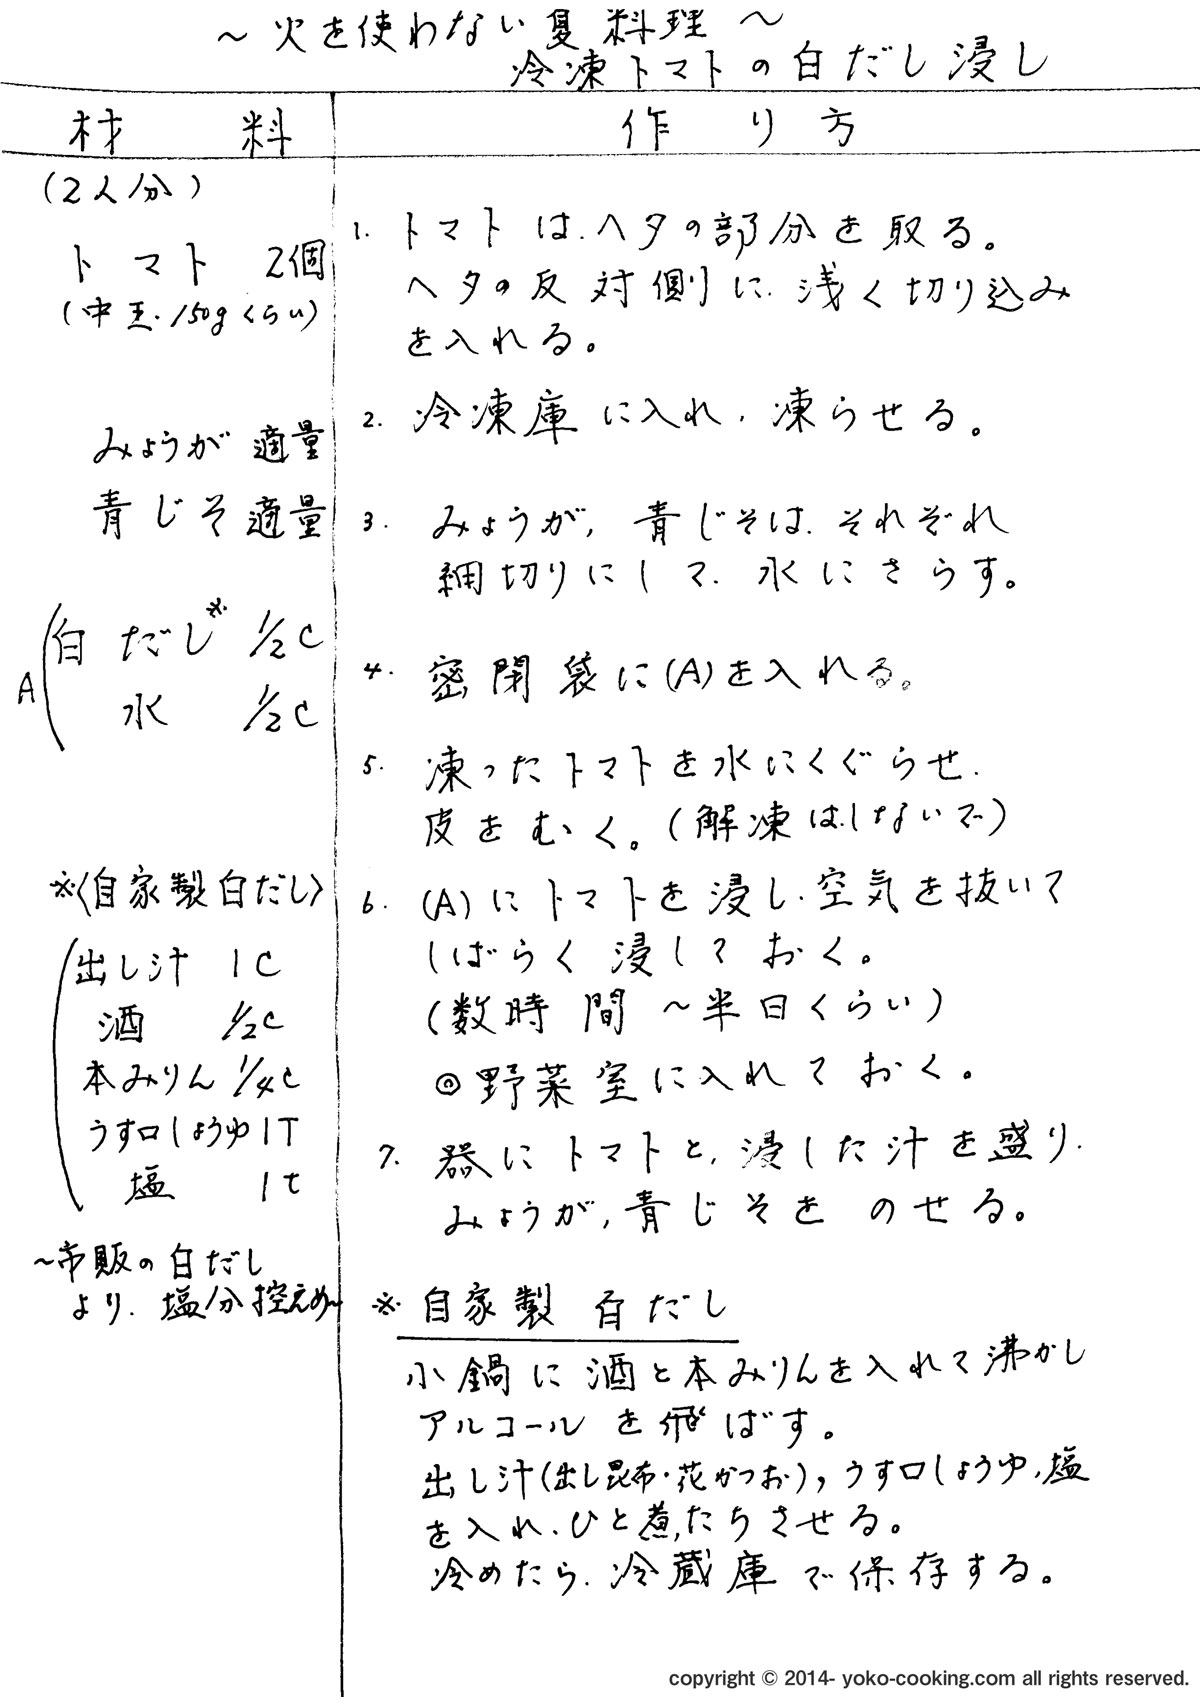 ～火を使わない夏料理～
冷凍トマトの白だし浸し
材料
作り方
(2人分)
トマト 2個
(中玉・150gくらい)
みょうが 適量
青じそ 適量
A
白だし※ 1/2C
水 1/2C
※〈自家製白だし〉
出し汁 1C
酒 1/2C
本みりん 1/4C
うす口しょうゆ 1T
塩 1t
～市販の白だし
より、塩分控えめ～
1. トマトは、ヘタの部分を取る。
ヘタの反対側に、浅く切り込み
を入れる。
2. 冷凍庫に入れ、凍らせる。
3. みょうが、青じそは、それぞれ
細切りにして、水にさらす。
4. 密閉袋に(A)を入れる。
5. 凍ったトマトを水にくぐらせ、
皮をむく。(解凍はしないで)
6. (A)にトマトを浸し、空気を抜いて
しばらく浸しておく。
(数時間～半日くらい)
◎野菜室に入れておく。
7. 器にトマトと、浸した汁を盛り、
みょうが、青じそをのせる。
※自家製白だし
小鍋に酒と本みりんを入れて沸かし
アルコールを飛ばす。
出し汁(出し昆布・花かつお)、うす口しょうゆ、塩
を入れ、ひと煮たちさせる。
冷めたら、冷蔵庫で保存する。
copyright © 2014- yoko-cooking.com all rights reserved.